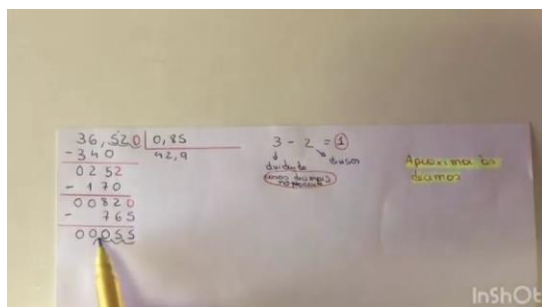 36,520 0,85
-340 42,9
0252
- 170
00820
- 765
00055
3 - 2 = 1
dividendo divisor
Aproximação às
décimas
InShOt